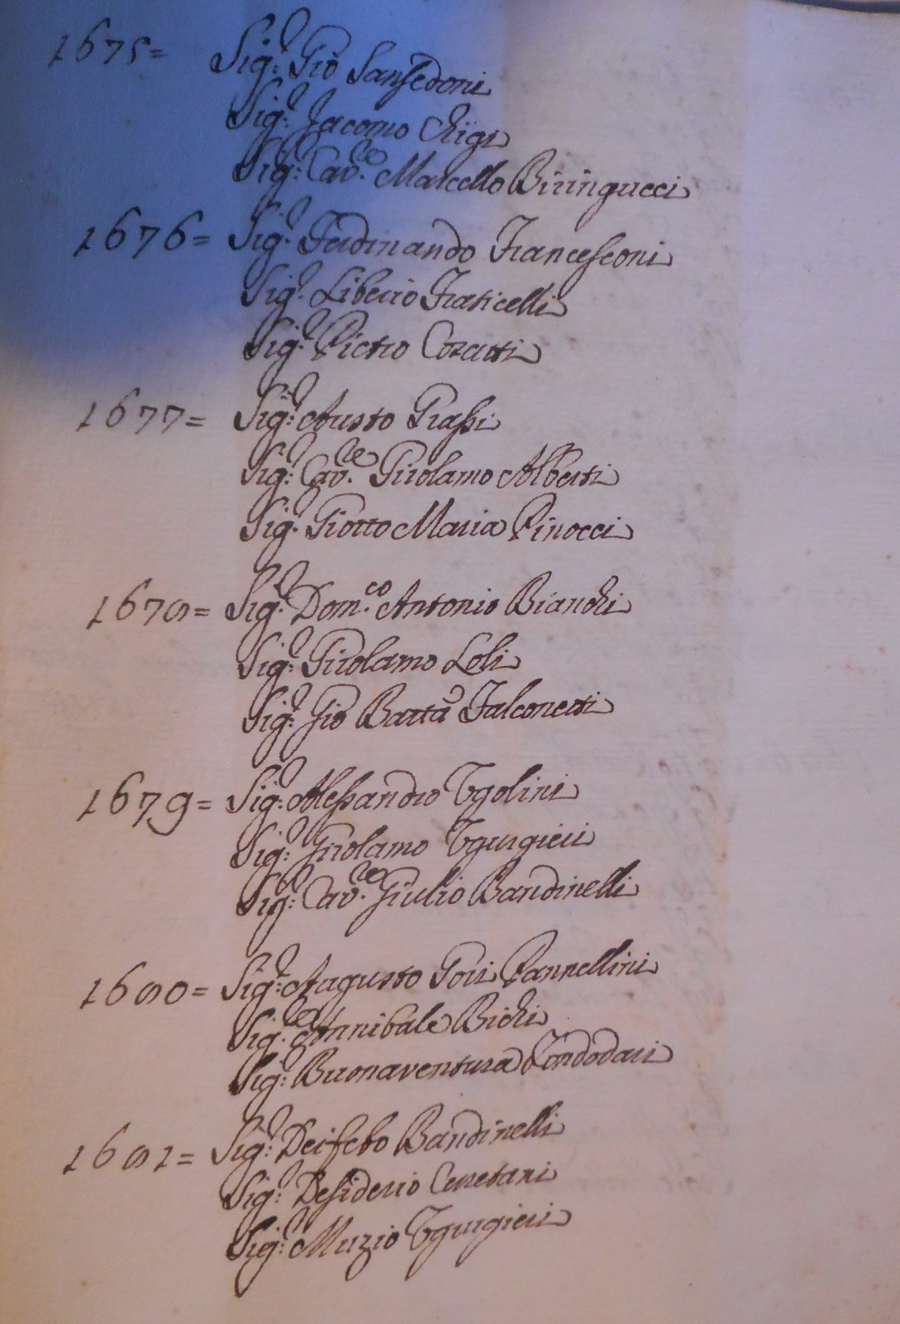 1675= Sig.r Gio Sansedoni
Sig.r Jacomo Chigi
Sig.r Cav.re Marcello Biringucci
1676= Sig.r Ferdinando Francesconi
Sig.r Liberio Fraticelli
Sig.r Pietro Cosatti
1677= Sig.r Austo Grassi
Sig.r Cav.re Girolamo Alberti
Sig.r Giotto Maria Pinocci
1678= Sig.r Dom.co Antonio Bianchi
Sig.r Girolamo Loli
Sig.r Gio Batta Falconetti
1679= Sig.r Alessandro Ugolini
Sig.r Girolamo Ugurgieri
Sig.r Cav.re Giulio Bandinelli
1680= Sig.r Augusto Gori Pannellini
Sig.re Annibale Bichi
Sig.r Buonaventura Zondodari
1681= Sig.r Deifebo Bandinelli
Sig.r Desiderio Cerretani
Sig.r Muzio Ugurgieri